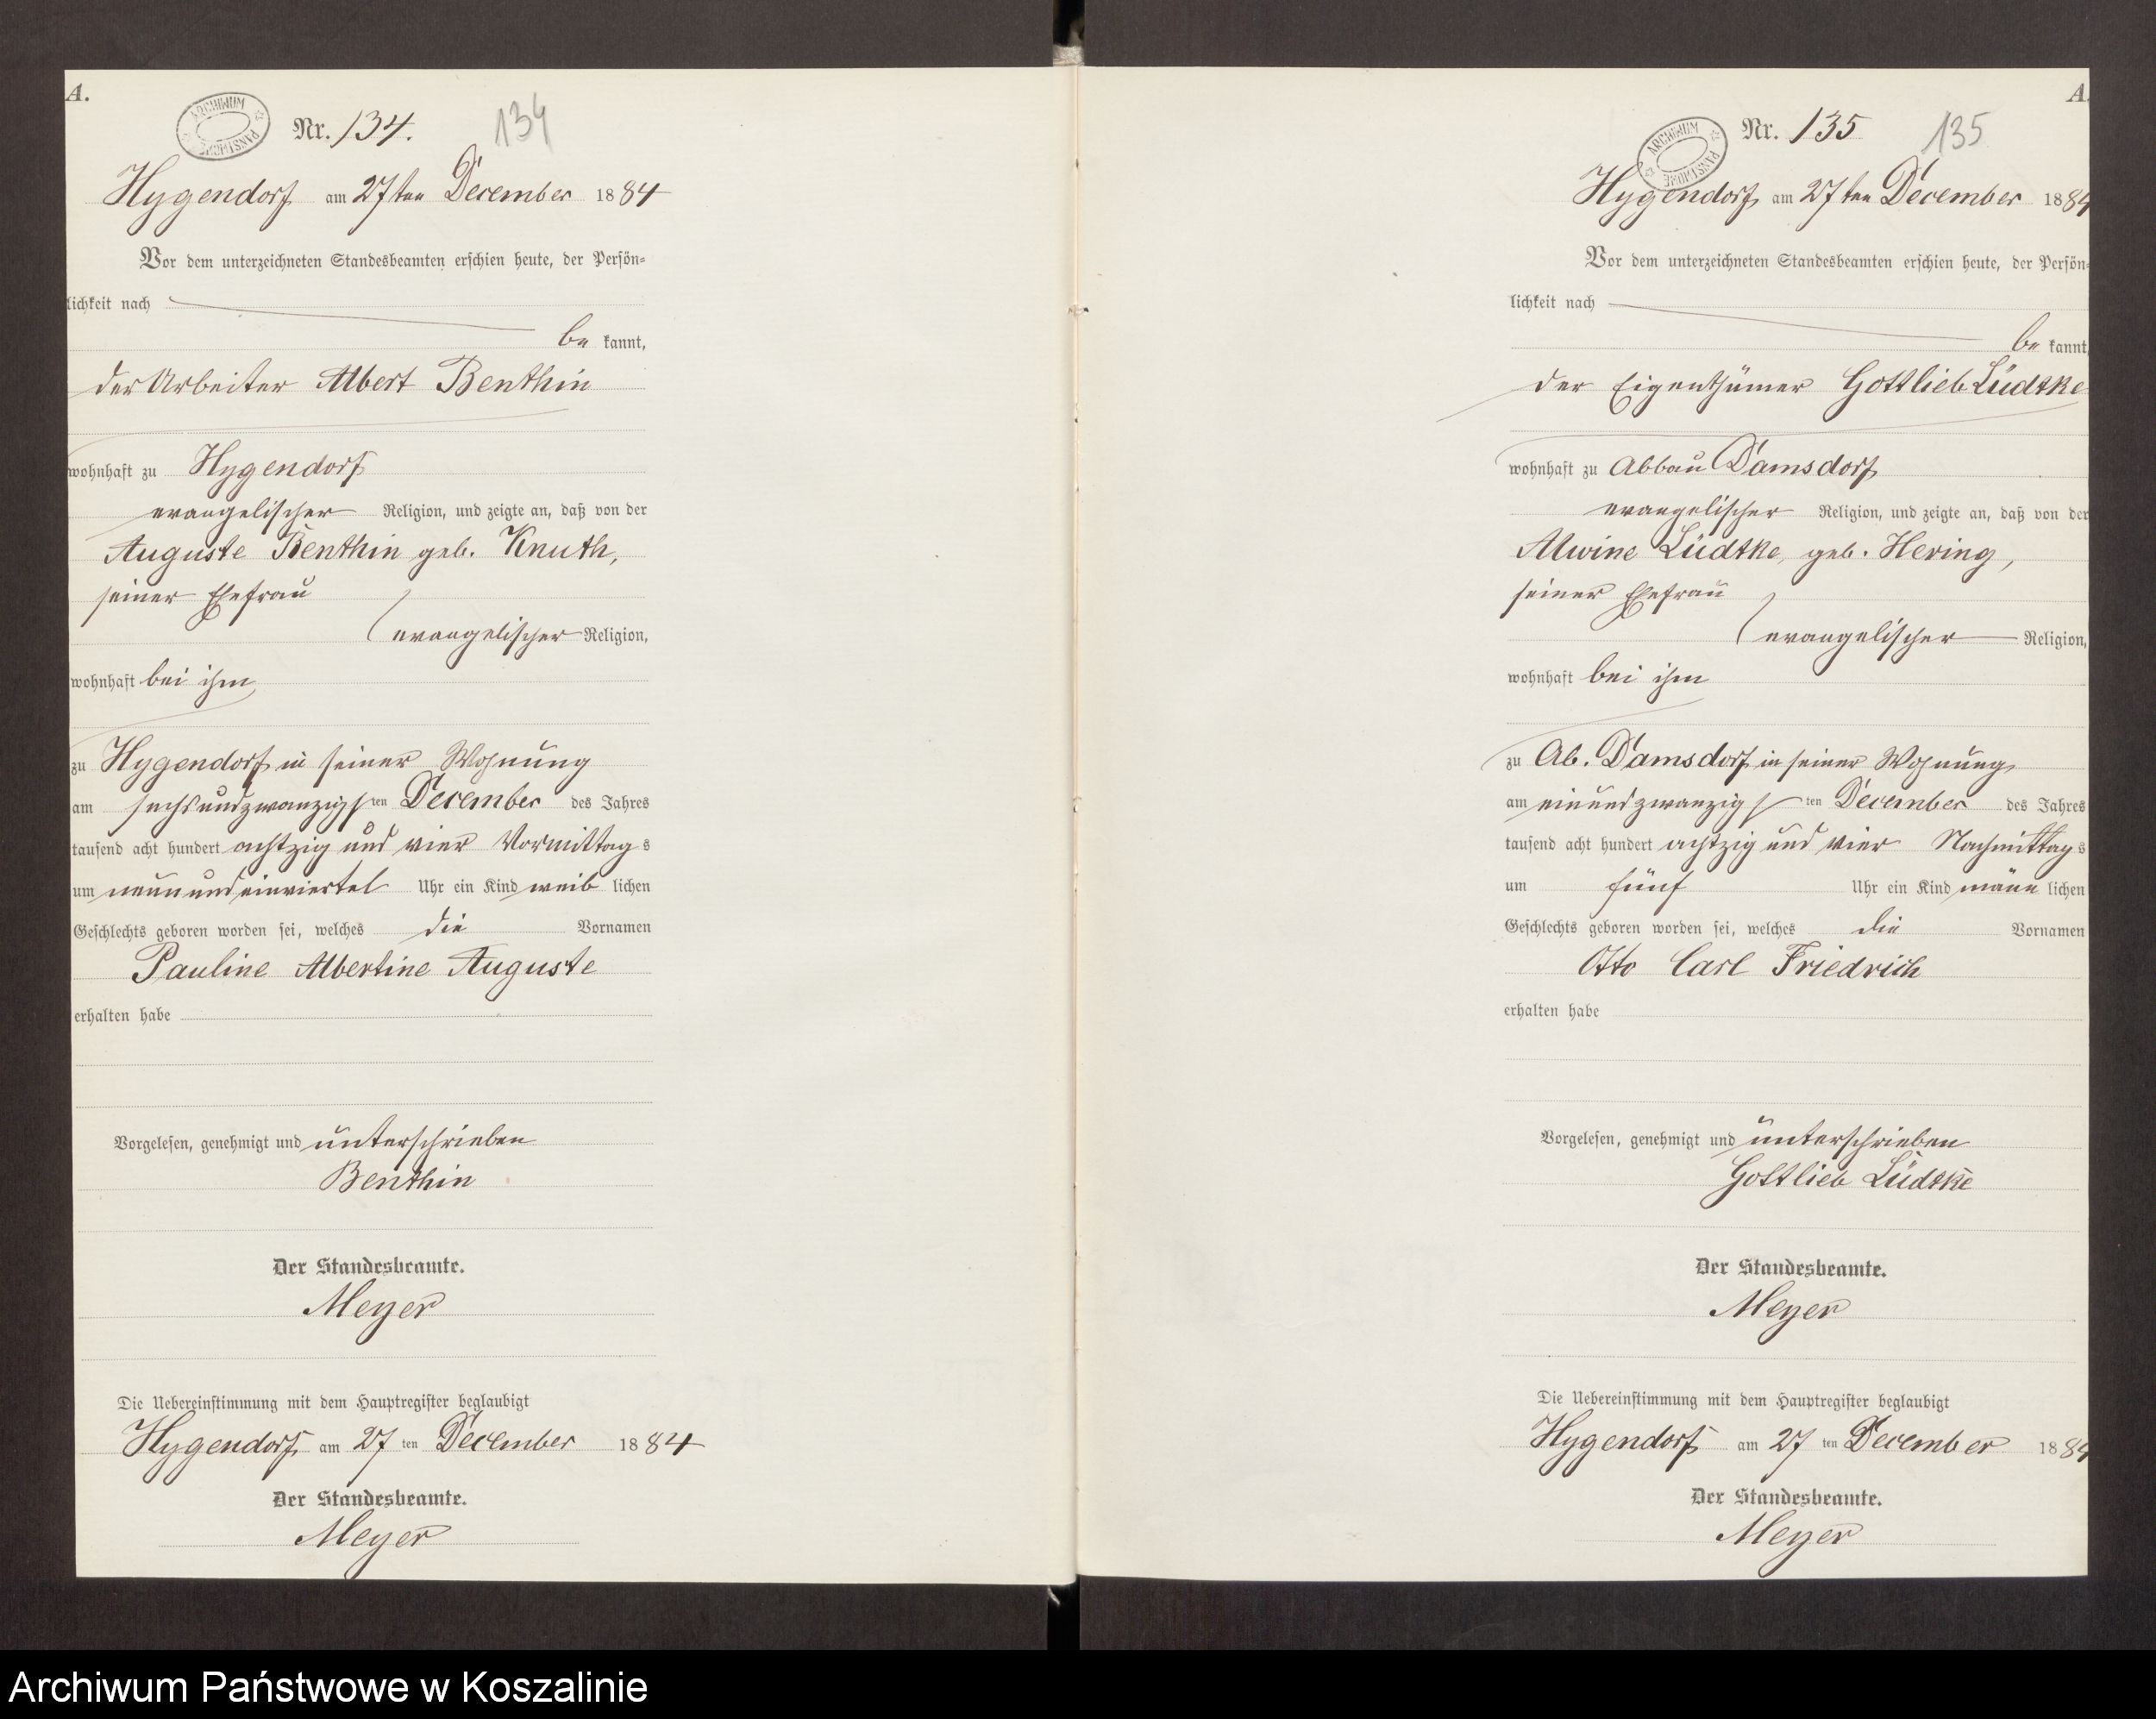 A.
ARCHIWUM PAŃSTWOWE
Nr. 134.
134
Hygendorf am 27ten December 1884
Vor dem unterzeichneten Standesbeamten erschien heute, der Persön-
lichkeit nach
be kannt,
der Arbeiter Albert Benthin
wohnhaft zu Hygendorf
evangelischer Religion, und zeigte an, daß von der
Auguste Benthin geb. Knuth,
seiner Ehefrau
evangelischer Religion,
wohnhaft bei ihm
zu Hygendorf in seiner Wohnung
am sechsundzwanzigsten December des Jahres
tausend acht hundert achtzig und vier Vormittags
um neun und einviertel Uhr ein Kind weiblichen
Geschlechts geboren worden sei, welches die Vornamen
Pauline Albertine Auguste
erhalten habe
Vorgelesen, genehmigt und unterschrieben
Benthin
Der Standesbeamte.
Meyer
Die Uebereinstimmung mit dem Hauptregister beglaubigt
Hygendorf am 27ten December 1884
Der Standesbeamte.
Meyer
A.
ARCHIWUM PAŃSTWOWE
Nr. 135
135
Hygendorf am 27ten December 1884
Vor dem unterzeichneten Standesbeamten erschien heute, der Persön-
lichkeit nach
be kannt,
der Eigenthümer Gottlieb Lüdtke
wohnhaft zu Abbau Damsdorf
evangelischer Religion, und zeigte an, daß von der
Alwine Lüdtke, geb. Hering,
seiner Ehefrau
evangelischer Religion,
wohnhaft bei ihm
zu Ab. Damsdorf in seiner Wohnung
am einundzwanzigsten December des Jahres
tausend acht hundert achtzig und vier Nachmittags
um fünf Uhr ein Kind männlichen
Geschlechts geboren worden sei, welches die Vornamen
Otto Carl Friedrich
erhalten habe
Vorgelesen, genehmigt und unterschrieben
Gottlieb Lüdtke
Der Standesbeamte.
Meyer
Die Uebereinstimmung mit dem Hauptregister beglaubigt
Hygendorf am 27ten December 1884
Der Standesbeamte.
Meyer
Archiwum Państwowe w Koszalinie